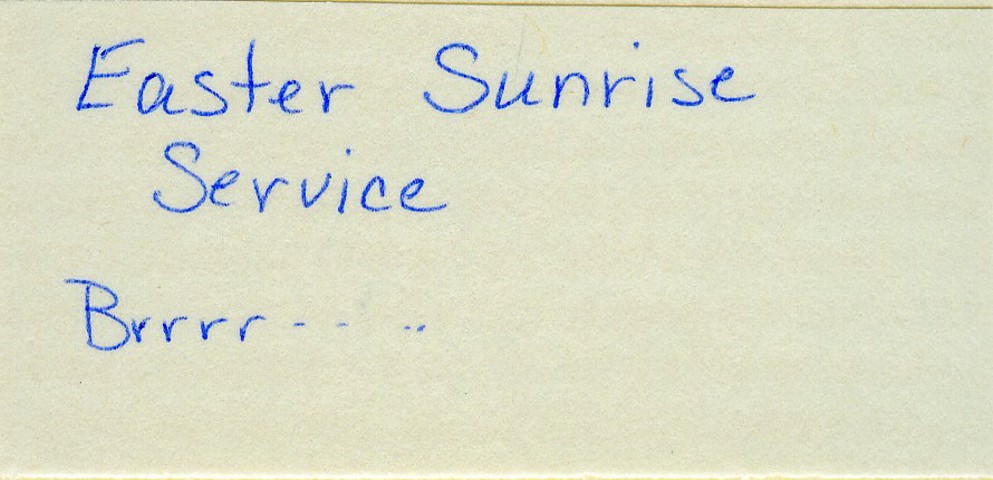 Easter Sunrise
Service
Brrrr-- ..